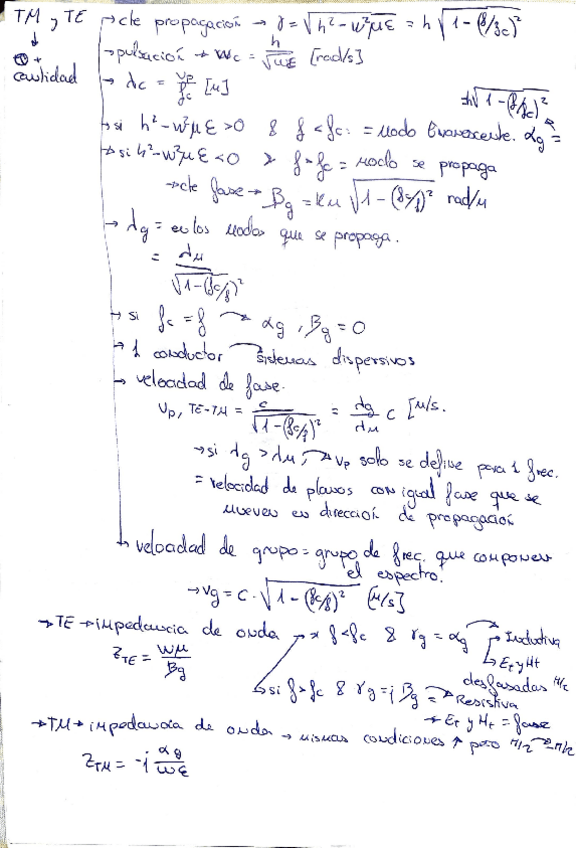 TM y TE → cte propagación → γ = √(h² − w²με) = h √(1 − (f/fc)²)
↓
⊕ +
cantidad
→ pulsación → wc = h/√με [rad/s]
→ λc = vp/fc [m]
±h √(1 − (f/fc)²)
→ si h² − w²με > 0 & f < fc: = modo Evanescente. αg =
→ si h² − w²με < 0 > f > fc = modo se propaga
→ cte fase → βg = km √(1 − (fc/f)²) rad/m
→ λg = en los modos que se propaga.
= λm / √(1 − (fc/f)²)
→ si fc = f → αg, βg = 0
→ 1 conductor → sistemas dispersivos
→ velocidad de fase.
vp, TE-TM = c / √(1 − (fc/f)²) = λg/λm c [m/s.
→ si λg > λm, → vp solo se define para 1 frec.
= velocidad de planos con igual fase que se
mueven en dirección de propagación
→ velocidad de grupo = grupo de frec. que componen
el espectro.
→ vg = c · √(1 − (fc/f)²) [m/s]
→ TE → impedancia de onda → * f < fc & γg = αg → Inductiva
ZTE = wμ/βg
↳ Et y Ht
desfasadas π/2
↳ si f > fc & γg = j βg = → Resistiva
→ Et y Ht = fase
→ TM → impedancia de onda → mismas condiciones ↑ pero π/2 → −π/2
ZTM = −j αg/wε